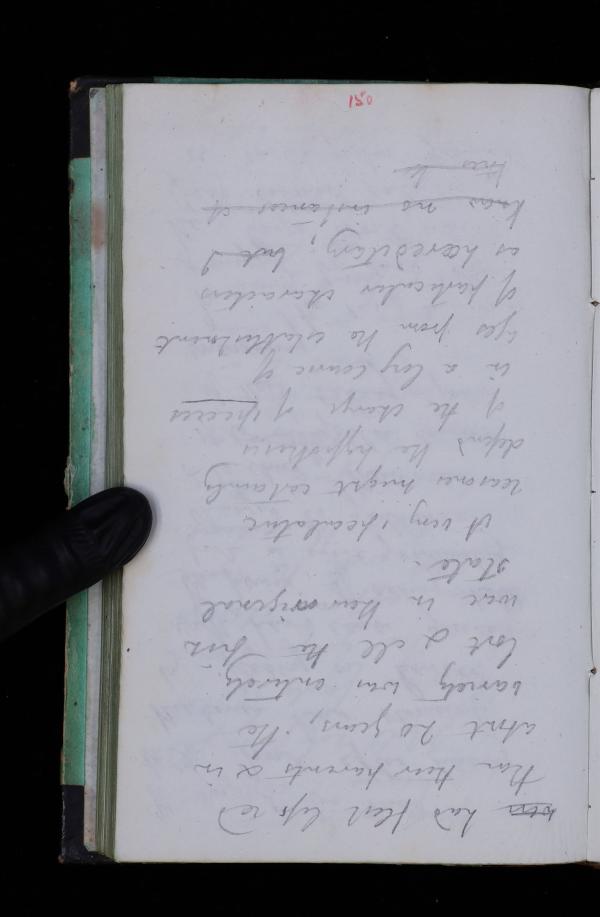 ~~were~~ had flesh less red
than their parents & in
about 20 years, the
variety was entirely
lost & all the fish
were in their original
state. -
A very speculative
reasoner might certainly
defend the hypothesis
of the change of species
in a long course of
ages from the establishment
of particular characters
as haereditary; ~~but I~~
~~know no instances of~~
150